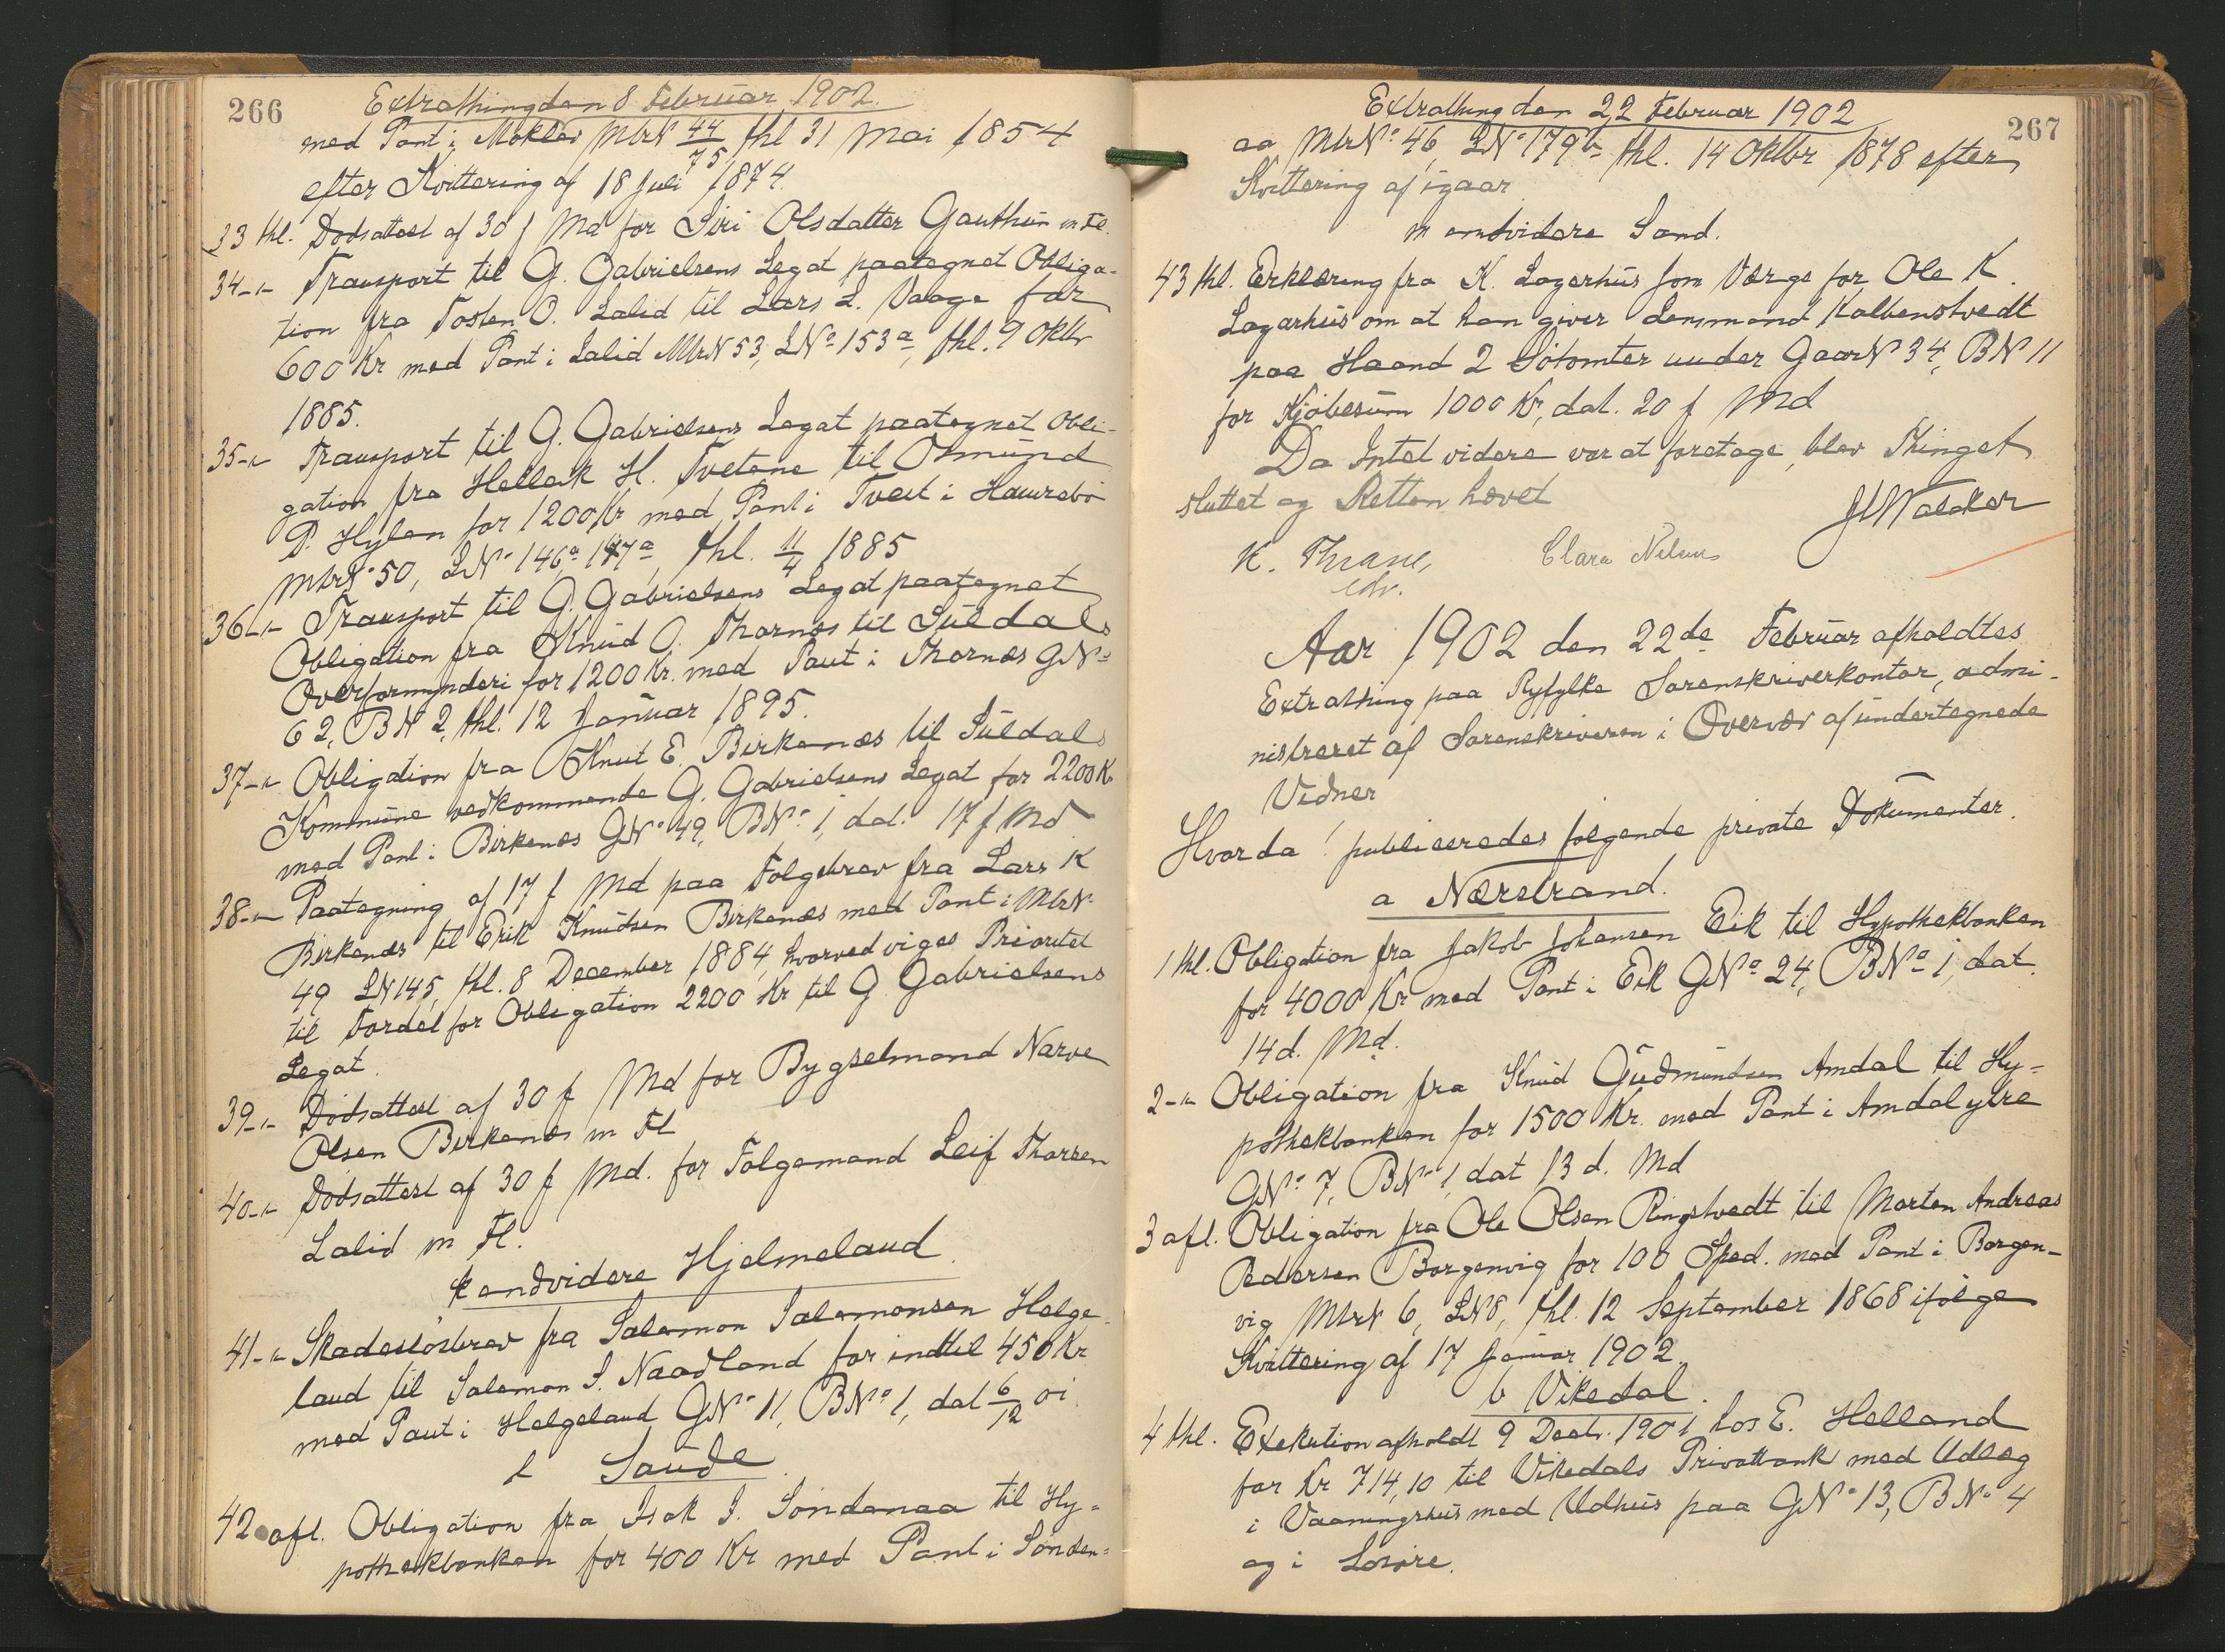 266
Extrathing den 8 Februar 1902.
med Pant i Moklev MtrN 44/75, thl 31 Mai 1854
efter Kvittering af 18 Juli 1874.
33 thl. Dødsattest af 30 f Md for Siri Olsdatter Gauthun m Fl.
34-"- Transport til G. Gabrielsens Legat paategnet Obliga-
tion fra Tosten O. Lalid til Lars L. Vaage for
600 Kr med Pant i Lalid MtrN 53, LNo 153a, thl. 9 Oktbr
1885.
35-"- Transport til G. Gabrielsens Legat paategnet Obli-
gation fra Helleik H. Tvetene til Osmund
P. Hylen for 1200 Kr med Pant i Tveit i Haurebø
MtrNo 50, LNo 146a, 147a, thl. 11/4 1885
36-"- Transport til G. Gabrielsens Legat paategnet
Obligation fra Knud O. Thornæs til Suldals
Overformynderi for 1200 Kr. med Pant i Thornæs GNo
62, BN 2, thl. 12 Januar 1895.
37-"- Obligation fra Knut E. Birkenæs til Suldals
Kommune vedkommende G. Gabrielsens Legat for 2200 Kr
med Pant i Birkenæs GNo 49, BNo 1, dat. 17 f Md
38-"- Paategning af 17 f Md paa Følgebrev fra Lars K
Birkenæs til Erik Knudsen Birkenæs med Pant i MtrN
49 LN 145, thl. 8 December 1884, hvorved viges Prioritet
til Fordel for Obligation 2200 Kr til G. Gabrielsens
Legat.
39-"- Dødsattest af 30 f Md for Bygselmand Narve
Olsen Birkenæs m Fl
40-"- Dødsattest af 30 f Md. for Følgemand Leif Thorsen
Lalid m Fl.
k endvidere Hjelmeland.
41-"- Skadesløsbrev fra Salamon Salamonsen Helge-
land til Salamon S. Naadland for indtil 450 Kr
med Pant i Helgeland GNo 11, BNo 1, dat 6/12 01
l Saude.
42 afl. Obligation fra Isak I. Søndenaa til Hy-
pothekbanken for 400 Kr med Pant i Sønden-
267
Extrathing den 22 Februar 1902
aa MtrNo 46, LNo 179b thl. 14 Oktbr 1878 efter
Kvittering af igaar
m endvidere Sand.
43 thl. Erklæring fra K. Lagerhus som Værge for Ole K.
Lagerhus om at han giver Lensmand Kalbenstvedt
paa Haand 2 Søtomter under GaarN 34, BN 11
for Kjøbesum 1000 Kr, dat. 20 f Md
Da Intet videre var at foretage, blev Thinget
sluttet og Retten hævet
JWalder
K. Thrane, Clara Nilsen
edv.
Aar 1902 den 22de Februar afholdtes
Extrathing paa Ryfylke Sorenskriverkontor, admi-
nistreret af Sorenskriveren i Overvær af undertegnede
Vidner
Hvorda! publiceredes følgende private Dokumenter.
a Nærstrand.
1 thl. Obligation fra Jakob Johansen Eik til Hypothekbanken
for 4000 Kr med Pant i Eik GNo 24, BNo 1, dat.
14 d. Md.
2-"- Obligation fra Knud Gudmundsen Amdal til Hy-
pothekbanken for 1500 Kr. med Pant i Amdal ytre
GNo 7, BNo 1, dat 13 d. Md
3 afl. Obligation fra Ole Olsen Ringstvedt til Morten Andreas
Pedersen Borgenvig for 100 Sped. med Pant i Borgen-
vig MtrN 6, LN 8, thl. 12 September 1868 ifølge
Kvittering af 17 Januar 1902.
b Vikedal.
4 thl. Exekution afholdt 9 Decbr. 1901 hos E. Helland
for Kr 714,10 til Vikedals Privatbank med Udlæg
i Vaaningshus med Udhus paa GNo 13, BNo 4
og i Løsøre.